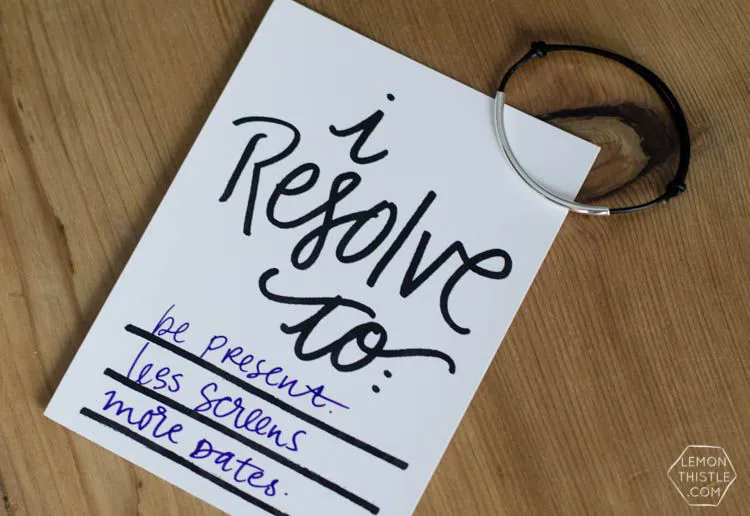 i
Resolve
to:
be present.
less screens
more dates.
LEMON
THISTLE
.COM